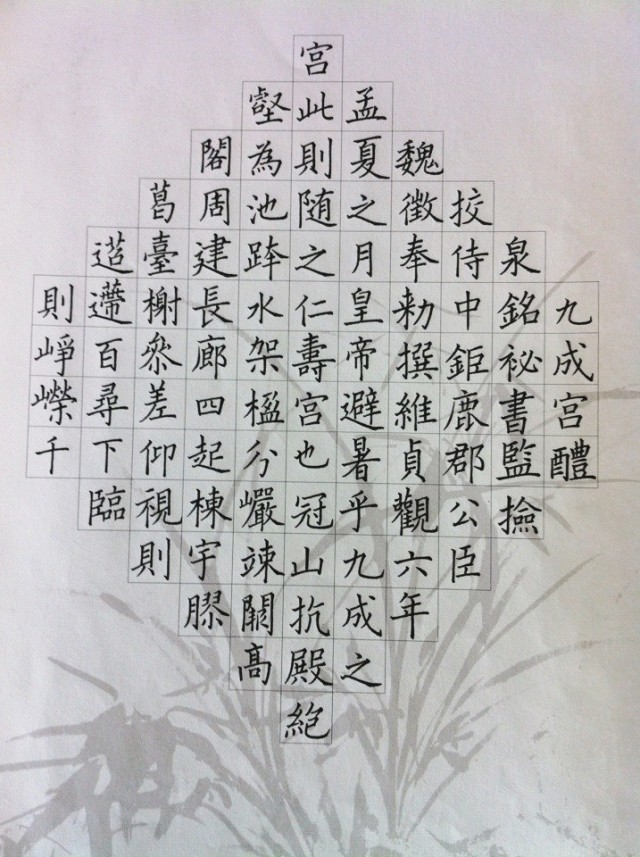 九成宮醴
泉銘祕書監撿
挍侍中鉅鹿郡公臣
魏徵奉勅撰維貞觀六年
孟夏之月皇帝避暑乎九成之
宮此則随之仁壽宮也冠山抗殿絶
壑為池跨水架楹分巖竦闕高
閣周建長廊四起棟宇膠
葛臺榭參差仰視則
迢遰百尋下臨
則崢嶸千